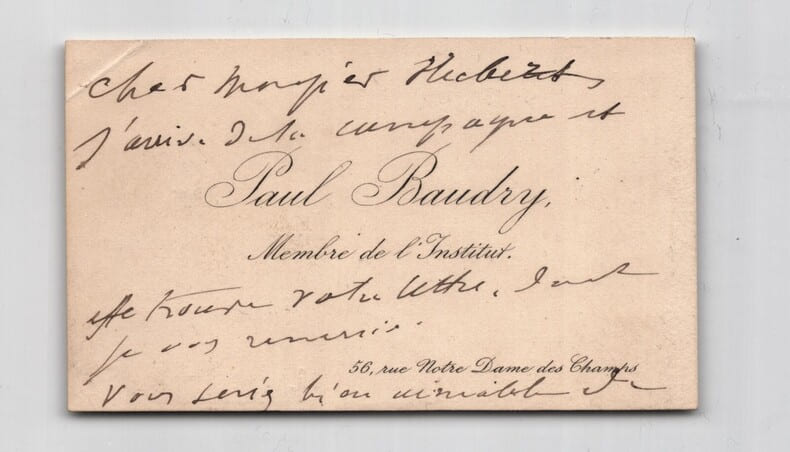 cher Monsieur Huberts
j'arrive de la campagne et
Paul Baudry,
Membre de l'Institut.
trouve votre lettre, dont
je vous remercie.
56, rue Notre Dame des Champs
Vous seriez bien aimable de